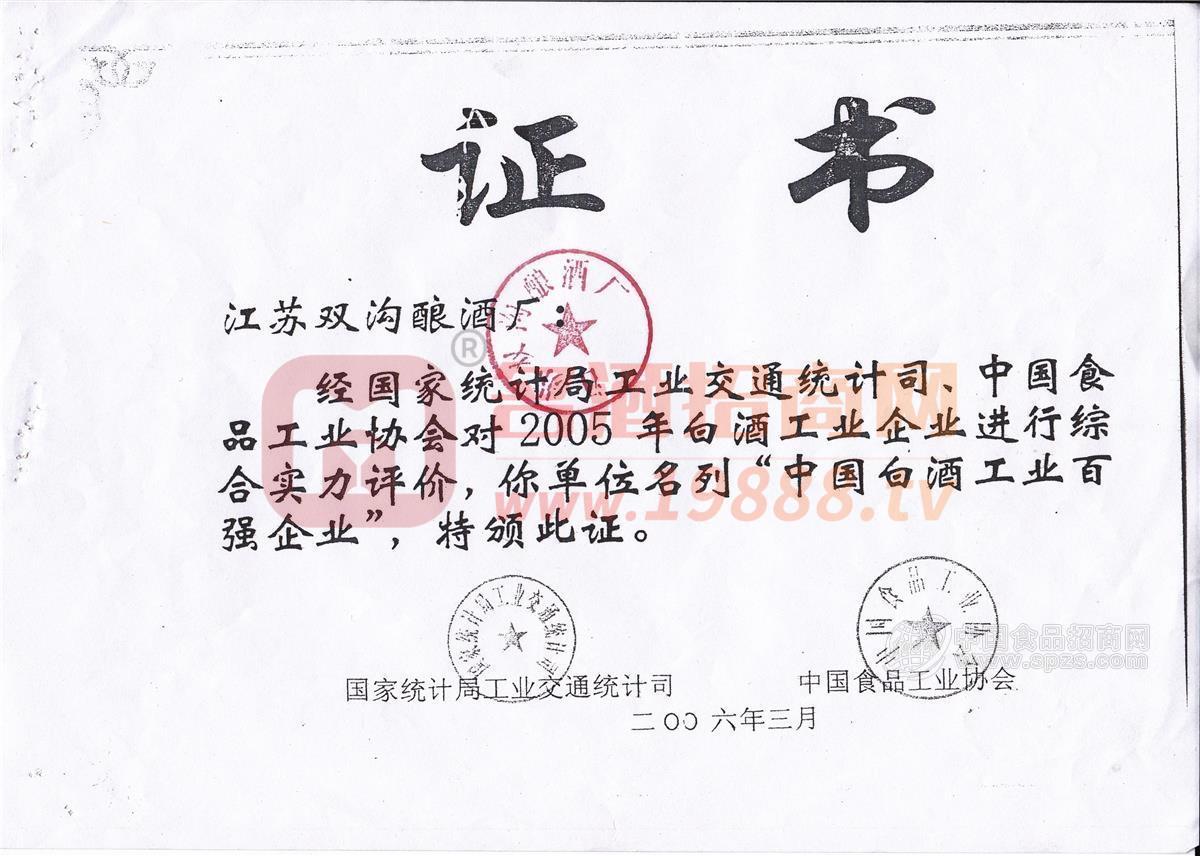 证书
江苏双沟酿酒厂：
经国家统计局工业交通统计司、中国食
品工业协会对2005年白酒工业企业进行综
合实力评价，你单位名列“中国白酒工业百
强企业”，特颁此证。
酿酒厂
®
招商网
www.19888.tv
国家统计局工业交通统计司
中国食品工业协会
中国食品招商网
www.spzs.com
国家统计局工业交通统计司
中国食品工业协会
二〇〇六年三月